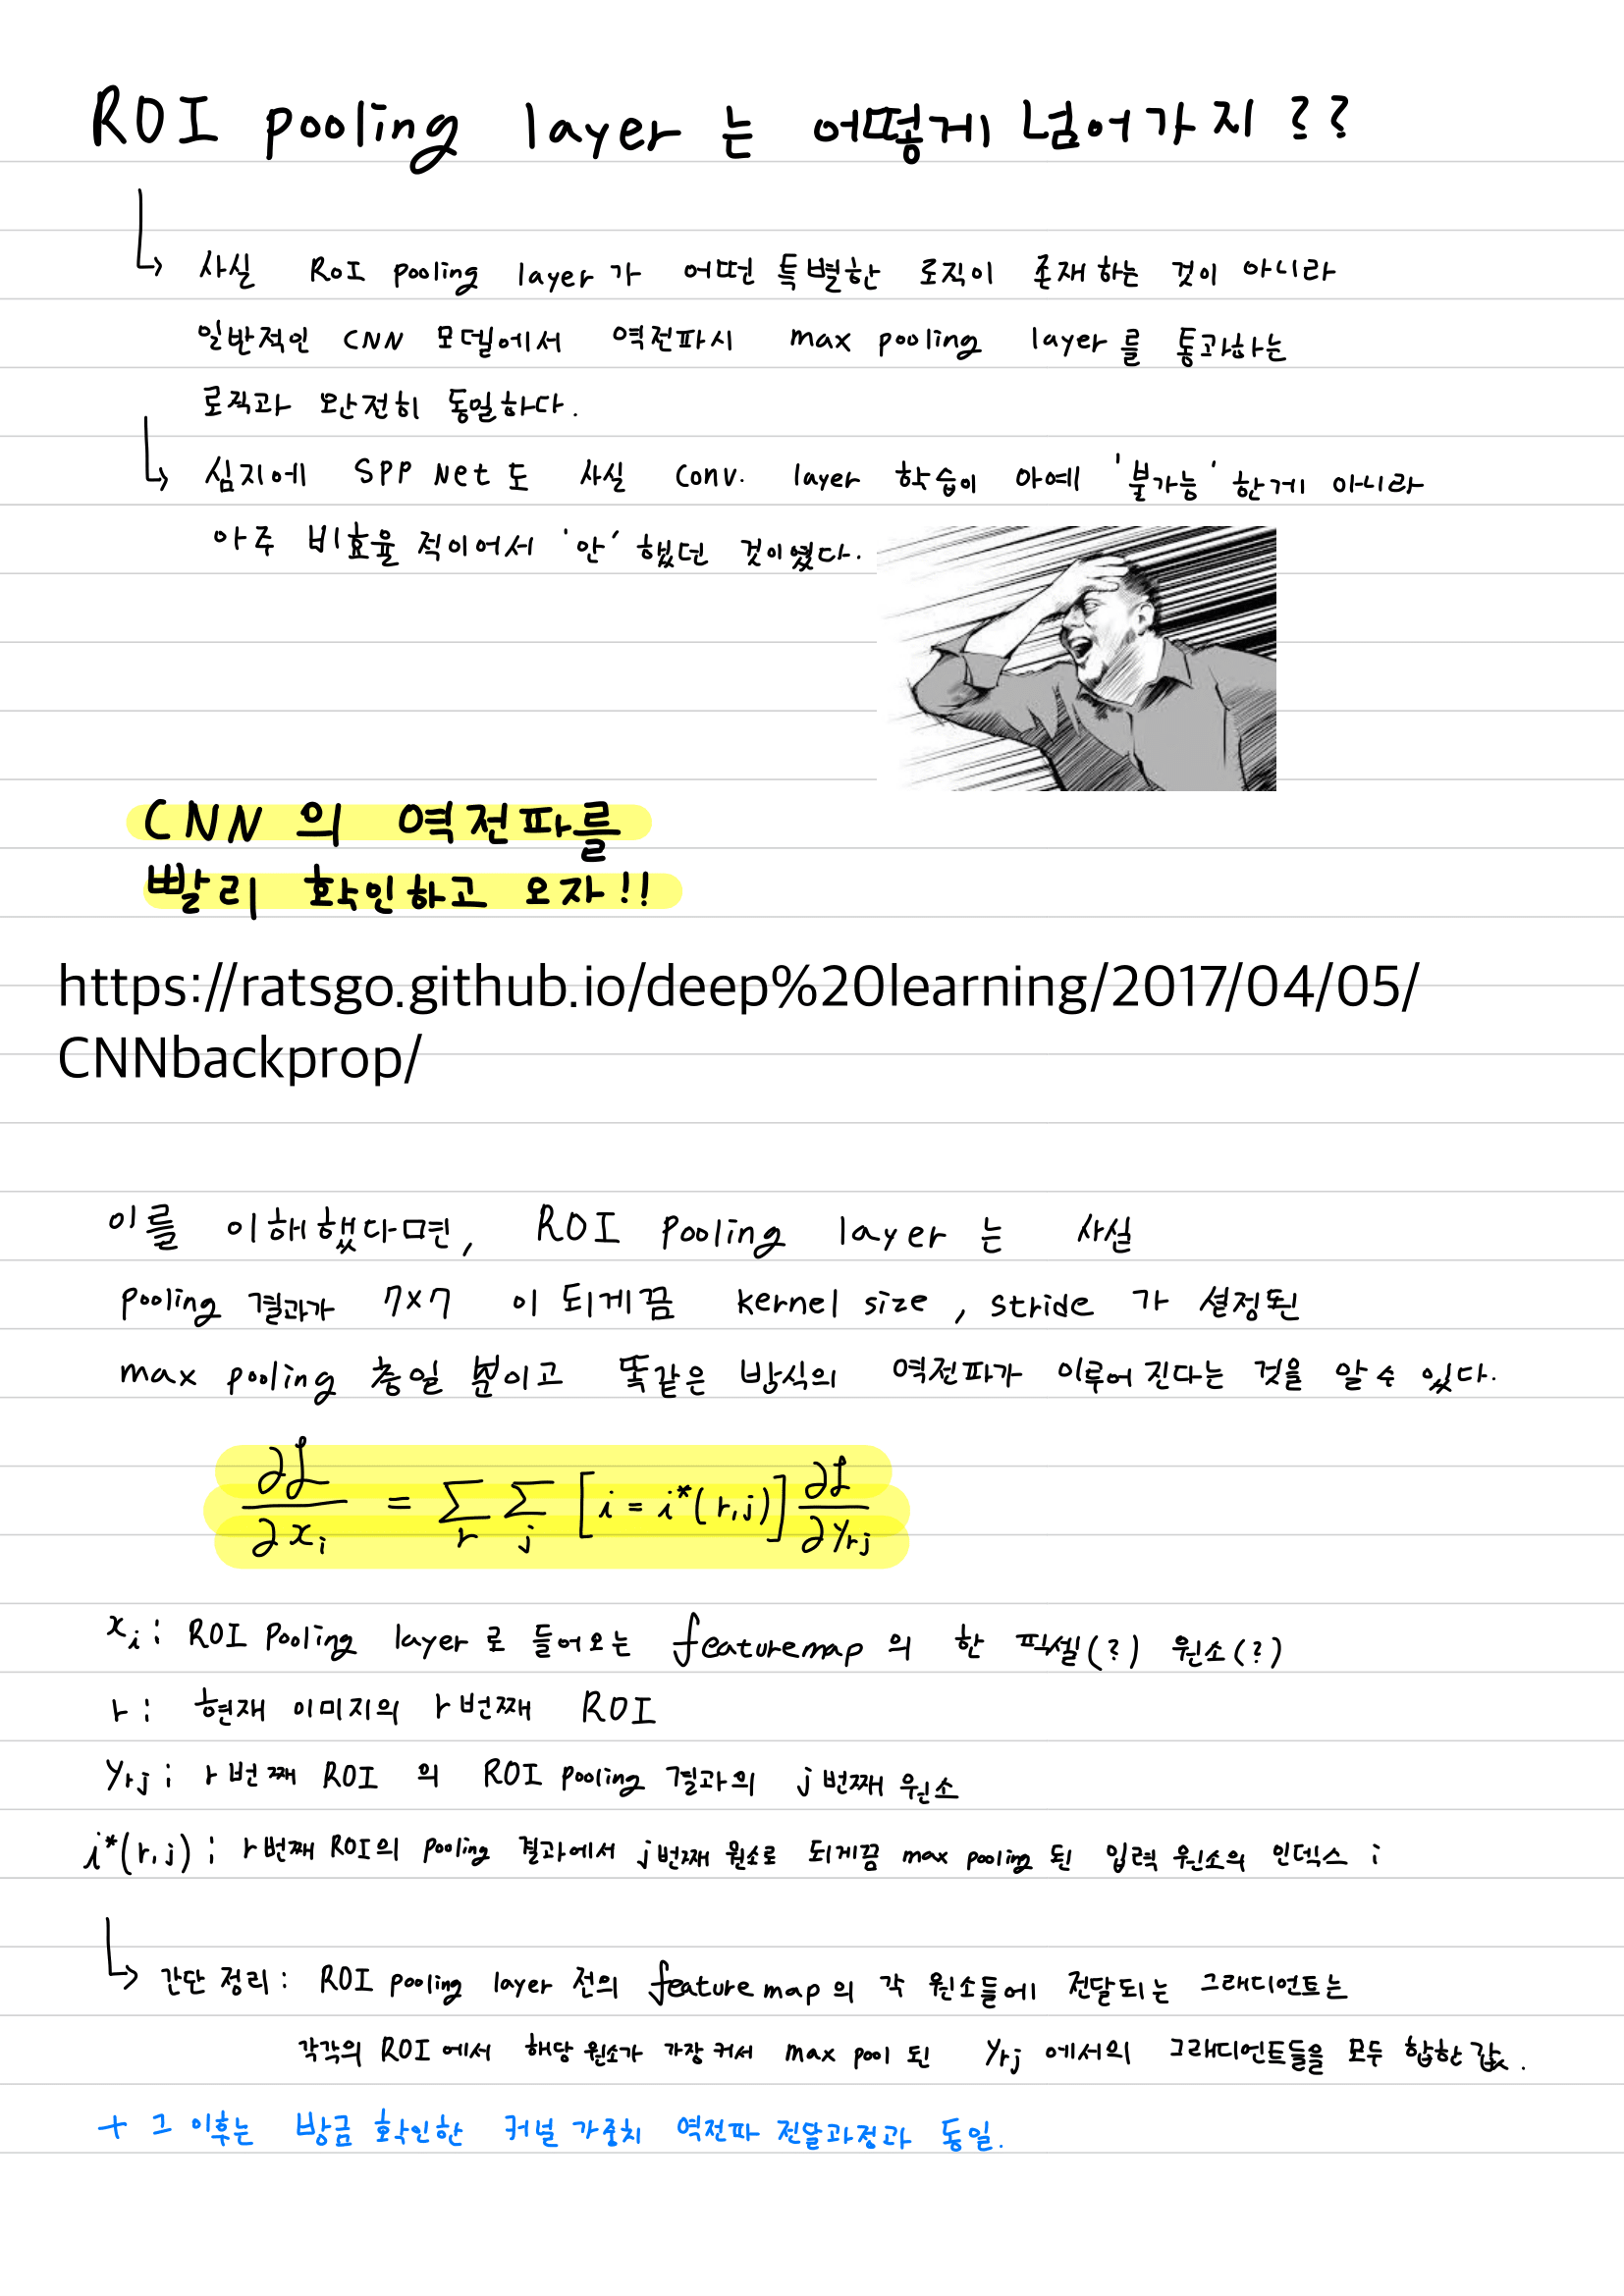 ROI pooling layer 는 어떻게 넘어가지??
↳ 사실 RoI pooling layer가 어떤 특별한 로직이 존재하는 것이 아니라
일반적인 CNN 모델에서 역전파시 max pooling layer를 통과하는
로직과 완전히 동일하다.
↳ 심지에 SPP Net도 사실 Conv. layer 학습이 아예 '불가능'한게 아니라
아주 비효율적이어서 '안'했던 것이였다.
CNN의 역전파를
빨리 확인하고 오자!!
https://ratsgo.github.io/deep%20learning/2017/04/05/
CNNbackprop/
이를 이해했다면, ROI Pooling layer는 사실
pooling 결과가 7×7 이 되게끔 kernel size, stride 가 설정된
max pooling 층일 뿐이고 똑같은 방식의 역전파가 이루어진다는 것을 알 수 있다.
∂L/∂x_i = Σ_r Σ_j [i = i*(r,j)] ∂L/∂y_rj
x_i : ROI Pooling layer로 들어오는 feature map의 한 픽셀(?) 원소(?)
r : 현재 이미지의 r번째 ROI
y_rj : r번째 ROI의 ROI pooling 결과의 j번째 원소
i*(r,j) : r번째 ROI의 pooling 결과에서 j번째 원소로 되게끔 max pooling 된 입력 원소의 인덱스 i
↳ 간단 정리 : ROI pooling layer 전의 feature map의 각 원소들에 전달되는 그래디언트는
각각의 ROI에서 해당 원소가 가장 커서 max pool 된 y_rj 에서의 그래디언트들을 모두 합한 값.
+ 그 이후는 방금 확인한 커널 가중치 역전파 전달과정과 동일.